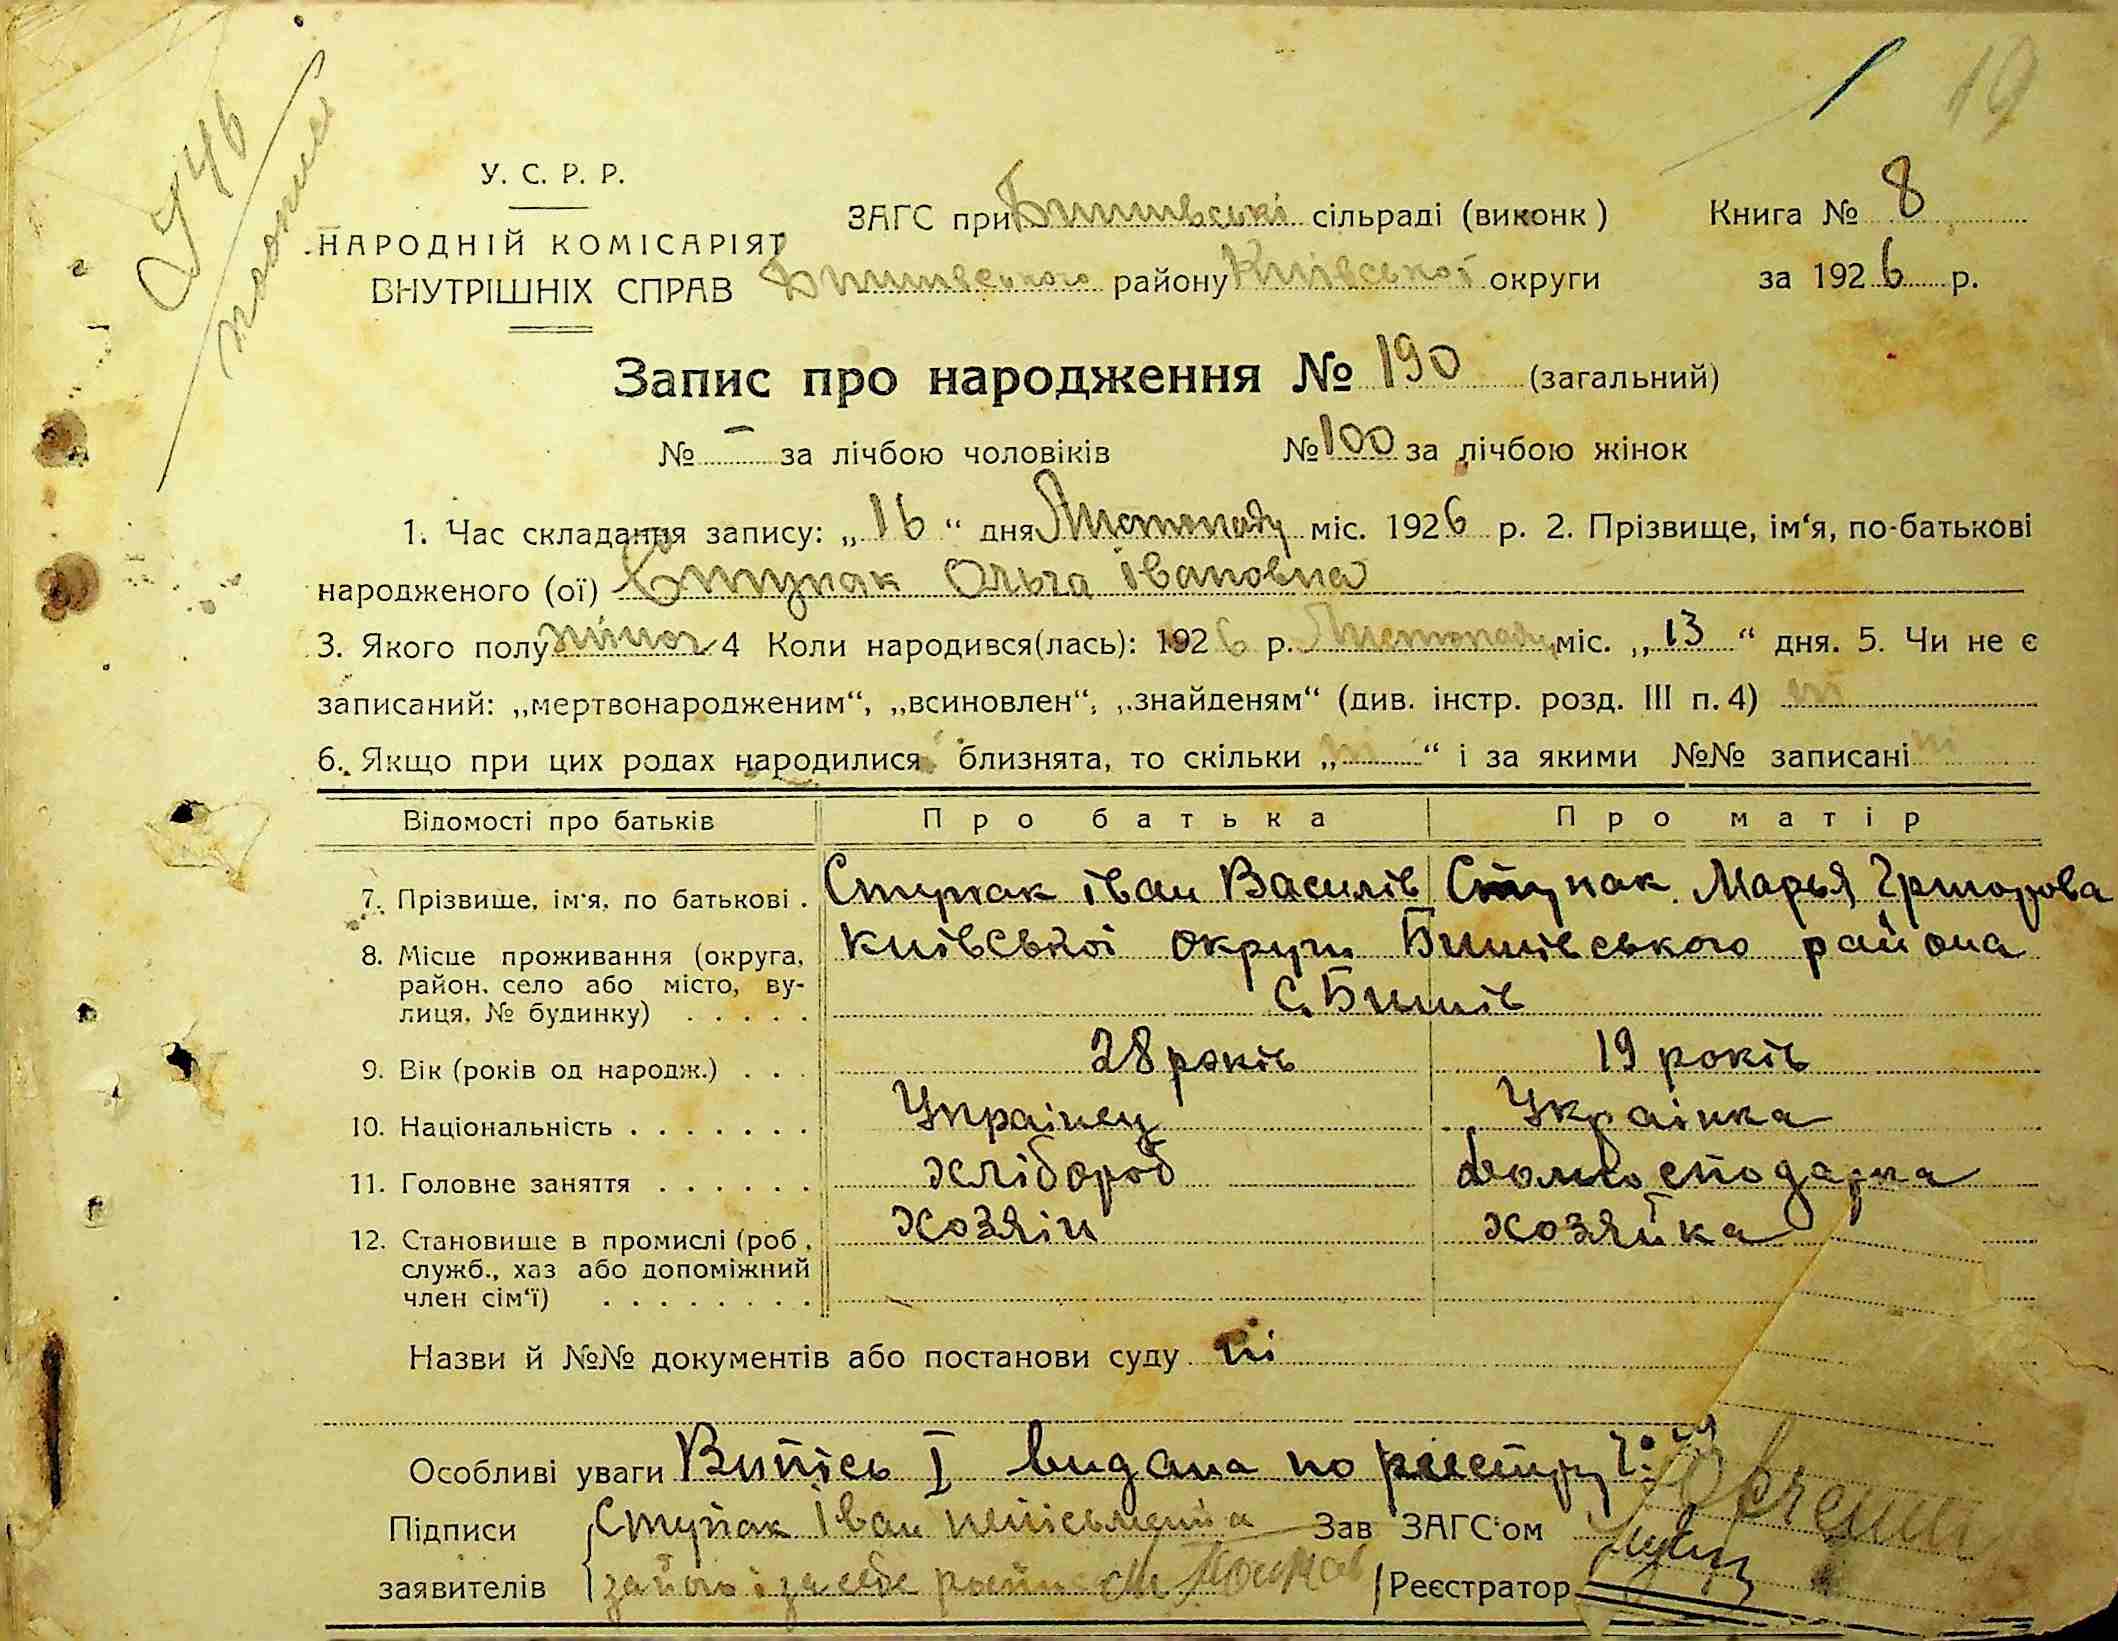 19
У. С. Р. Р.
НАРОДНІЙ КОМІСАРІЯТ
ВНУТРІШНІХ СПРАВ
ЗАГС при Бишівські сільраді (виконк) Книга № 8
Бишівського району Київської округи за 1926 р.
Запис про народження № 190 (загальний)
№ — за лічбою чоловіків № 100 за лічбою жінок
1. Час складання запису: „16“ дня Листопаду міс. 1926 р. 2. Прізвище, ім‘я, по-батькові
народженого (ої) Ступак Ольга Івановна
3. Якого полу жіноч 4 Коли народився(лась): 1926 р. Листопаду міс. „13“ дня. 5. Чи не є
записаний: „мертвонародженим“, „всиновлен“, „знайденям“ (див. інстр. розд. III п. 4) ні
6. Якщо при цих родах народилися близнята, то скільки „ні“ і за якими №№ записані ні
Відомості про батьків Про батька Про матір
7. Прізвище, ім‘я, по батькові . Ступак іван Василів Ступак Марья Григорова
8. Місце проживання (округа, Київської округи Бишівського района
район, село або місто, ву- с. Бишів
лиця, № будинку) . . . . .
9. Вік (років од народж.) . . . 28 років 19 років
10. Національність . . . . . . . Українец Українка
11. Головне заняття . . . . . . Хлібороб Домгосподарка
12. Становище в промислі (роб., хозяїн хозяйка
служб., хаз або допоміжний
член сім‘ї) . . . . . . . .
Назви й №№ документів або постанови суду ні
Особливі уваги Випісь I видана по реєстру
Підписи Ступак Іван Зав ЗАГС‘ом
заявителів за його і за себе Реєстратор